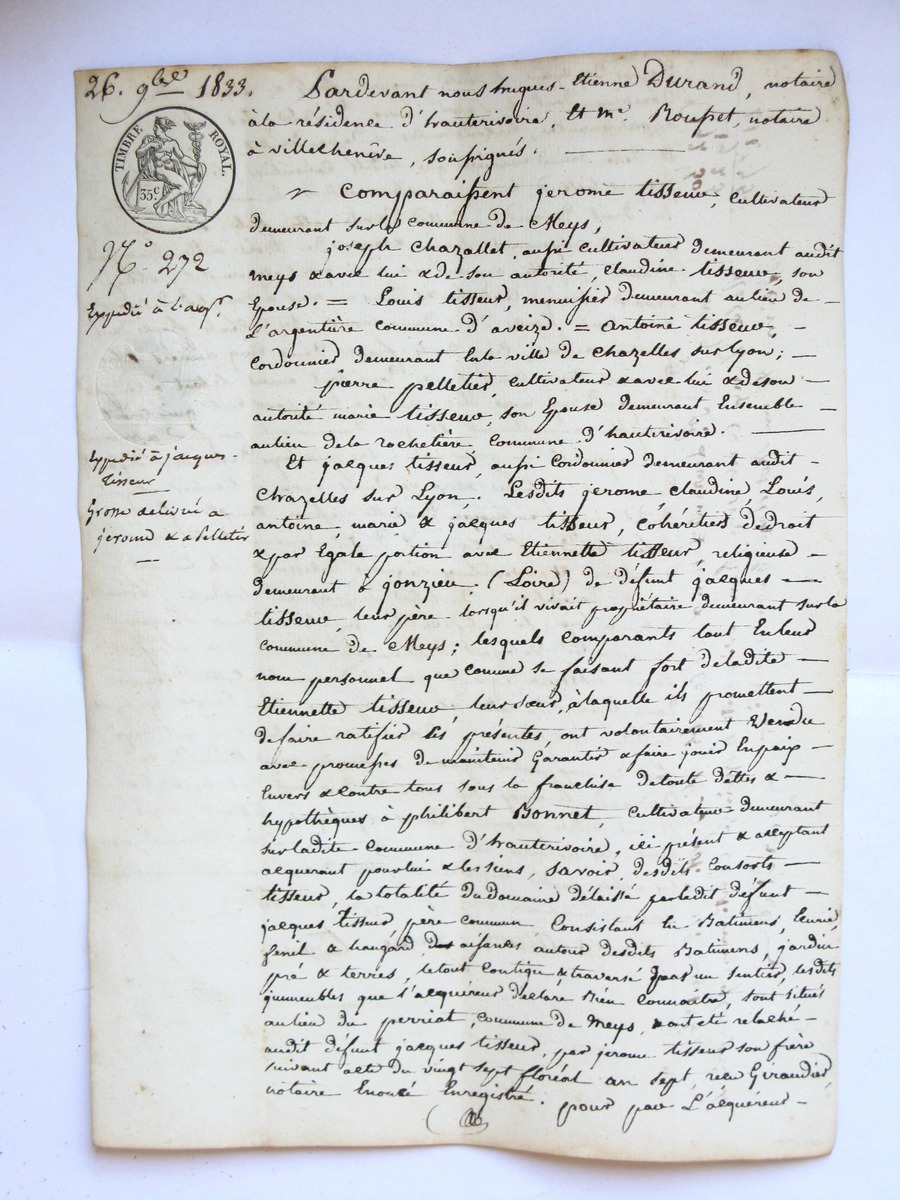 26. 9bre 1833.
TIMBRE ROYAL.
35c.
N.° 272
Expedié à l'acqr.
Expedié à jacques
tisseur
Grosse delivré a
jerome & a Pelletier
Pardevant nous hugues-Etienne Durand, notaire
à la résidence d'hauterivoire, Et Me. Rousset, notaire
à villechenève, soussignés.
Comparaissent jerome tisseur, Cultivateur
demeurant sur la commune de Meys,
joseph chazallet, aussi cultivateur demeurant audit
meys & avec lui & de son autorité, claudine tisseur, son
Epouse. = Louis tisseur, menuisier demeurant au lieu de
L'argentière commune d'aveize. = antoine tisseur,
Cordonnier demeurant En la ville de chazelles sur lyon;
pierre pelletier, cultivateur & avec lui & de son
autorité marie tisseur, son Epouse demeurant Ensemble
au lieu de la rochetière commune d'hauterivoire.
Et jacques tisseur, aussi Cordonnier demeurant audit
Chazelles sur Lyon. Lesdits jerome, claudine, Louis,
antoine, marie & jacques tisseur, cohéritiers de droit
& par Egale portion avec Etiennette tisseur, religieuse
demeurant à jonzieu (Loire) de défunt jacques
tisseur, leur père lorsqu'il vivait propriétaire demeurant sur la
commune de Meys; lesquels comparants tant En leur
nom personnel que comme se faisant fort de ladite
Etiennette tisseur leur sœur, à laquelle ils promettent
de faire ratifier les présentes, ont volontairement Vendu
avec promesses de maintenir Garantir & faire jouir En paix
Envers & contre tous sous la franchise de toute dettes &
hypothèques à philibert Bonnet, cultivateur demeurant
sur ladite commune d'hauterivoire, ici présent & acceptant
acquerant pour lui & les siens, savoir, desdits Consorts
tisseur, la totalité du domaine délaissé par ledit défunt
jacques tisseur père commun Consistant En Batimens, Ecurie,
fenil & hangard, des aisances autour desdits Batimens, jardin
pré & terres, le tout contigu & traversé par un sentier, lesdits
jmmeubles que l'acquéreur déclare Bien connaitre, sont situés
au lieu du perriat, commune de meys, & ont été relaché
audit défunt jacques tisseur, par jerome tisseur son frère
suivant acte du vingt sept floréal an sept, reçu Giraudier
notaire Enoncé Enregistré. pour par L'acquéreur